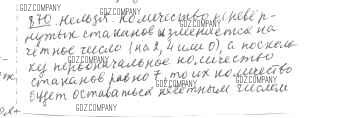 GDZ.COMPANY
GDZ.COMPANY
870. Нельзя. Количество перевёр-
GDZ.COMPANY
нутых стаканов изменяется на
чётное число (на 2, 4 или 0), а посколь
GDZ.COMPANY
ку первоначальное количество
GDZ.COMPANY GDZ.COMPANY
стаканов равно 7, то их количество
будет оставаться нечётным числом
GDZ.COMPANY